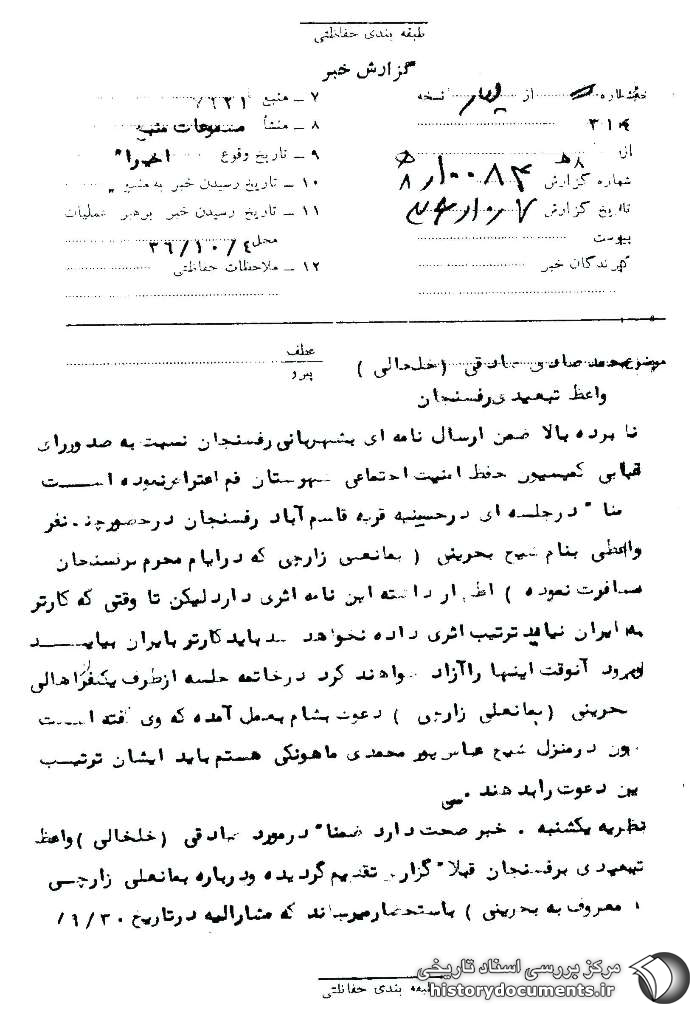 طبقه بندی حفاظتی
گزارش خبر
شماره از چهار نسخه
۳۱۴
از: ۸ ه
شماره گزارش
تاریخ گزارش
پیوست
گیرندگان خبر
۷ ـ منبع ۶۲۱/
۸ ـ منشأ مسموعات منبع
۹ ـ تاریخ وقوع اخیرا"
۱۰ ـ تاریخ رسیدن خبر به منبع "
۱۱ ـ تاریخ رسیدن خبر برهبر عملیات
محل ۳۶/۱۰/۴
۱۲ ـ ملاحظات حفاظتی
عطف
پیرو
موضوع محمد صادق صادقی (خلخالی)
واعظ تبعیدی رفسنجان
نا برده بالا ضمن ارسال نامه ای بشهربانی رفسنجان نسبت به صدور رای
کمیسیون حفظ امنیت اجتماعی شهرستان قم اعتراض نموده است
در جلسه ای در حسینیه قریه قاسم آباد رفسنجان در حضور چند نفر
واعظی بنام شیخ بحرینی ( رمانعلی زارچی که در ایام محرم برفسنجان
مسافرت نموده ) اظهار داشته این نامه اثری دارد لیکن تا وقتی که کارتر
به ایران نیاید ترتیب اثری داده نخواهد شد باید کارتر بایران بیاید
وبرود آنوقت اینها را آزاد خواهند کرد در خاتمه جلسه از طرف یکنفر از اهالی
بحرینی ( رمانعلی زارچی ) دعوت بشام بعمل آمده که وی گفته است
چون در منزل شیخ عباس پور محمدی ماهونکی هستم باید ایشان ترتیب
این دعوت را بدهند .
نظریه یکشنبه . خبر صحت دارد ضمنا" در مورد صادقی (خلخالی) واعظ
تبعیدی برفسنجان قبلا" گزارش تقدیم گردیده و درباره رمانعلی زارچی
( معروف به بحرینی ) باستحضار میرساند که مشارالیه در تاریخ ۶/۳۰/
طبقه بندی حفاظتی
مرکز بررسی اسناد تاریخی
historydocuments.ir